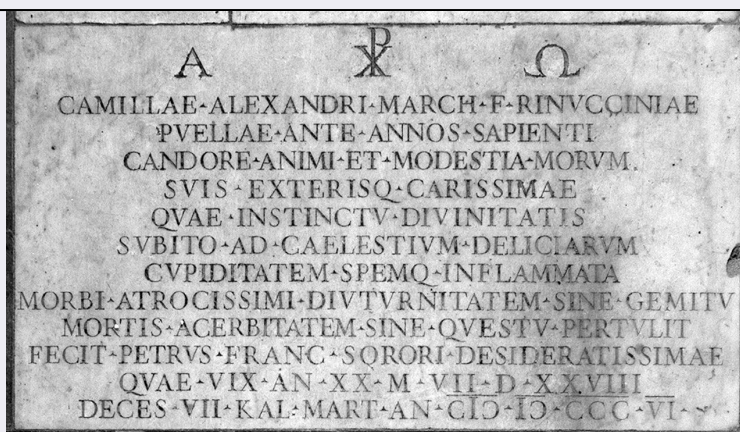 Α ☧ Ω
CAMILLAE·ALEXANDRI·MARCH·F·RINVCCINIAE
PVELLAE·ANTE·ANNOS·SAPIENTI
CANDORE·ANIMI·ET·MODESTIA·MORVM
SVIS·EXTERISQ·CARISSIMAE
QVAE·INSTINCTV·DIVINITATIS
SVBITO·AD·CAELESTIVM·DELICIARVM
CVPIDITATEM·SPEMQ·INFLAMMATA
MORBI·ATROCISSIMI·DIVTVRNITATEM·SINE·GEMITV
MORTIS·ACERBITATEM·SINE·QVESTV·PERTVLIT
FECIT·PETRVS·FRANC·SORORI·DESIDERATISSIMAE
QVAE·VIX·AN·XX·M·VII·D·XXVIII
DECES·VII·KAL·MART·AN·CIↃ·IↃ·CCC·VI·